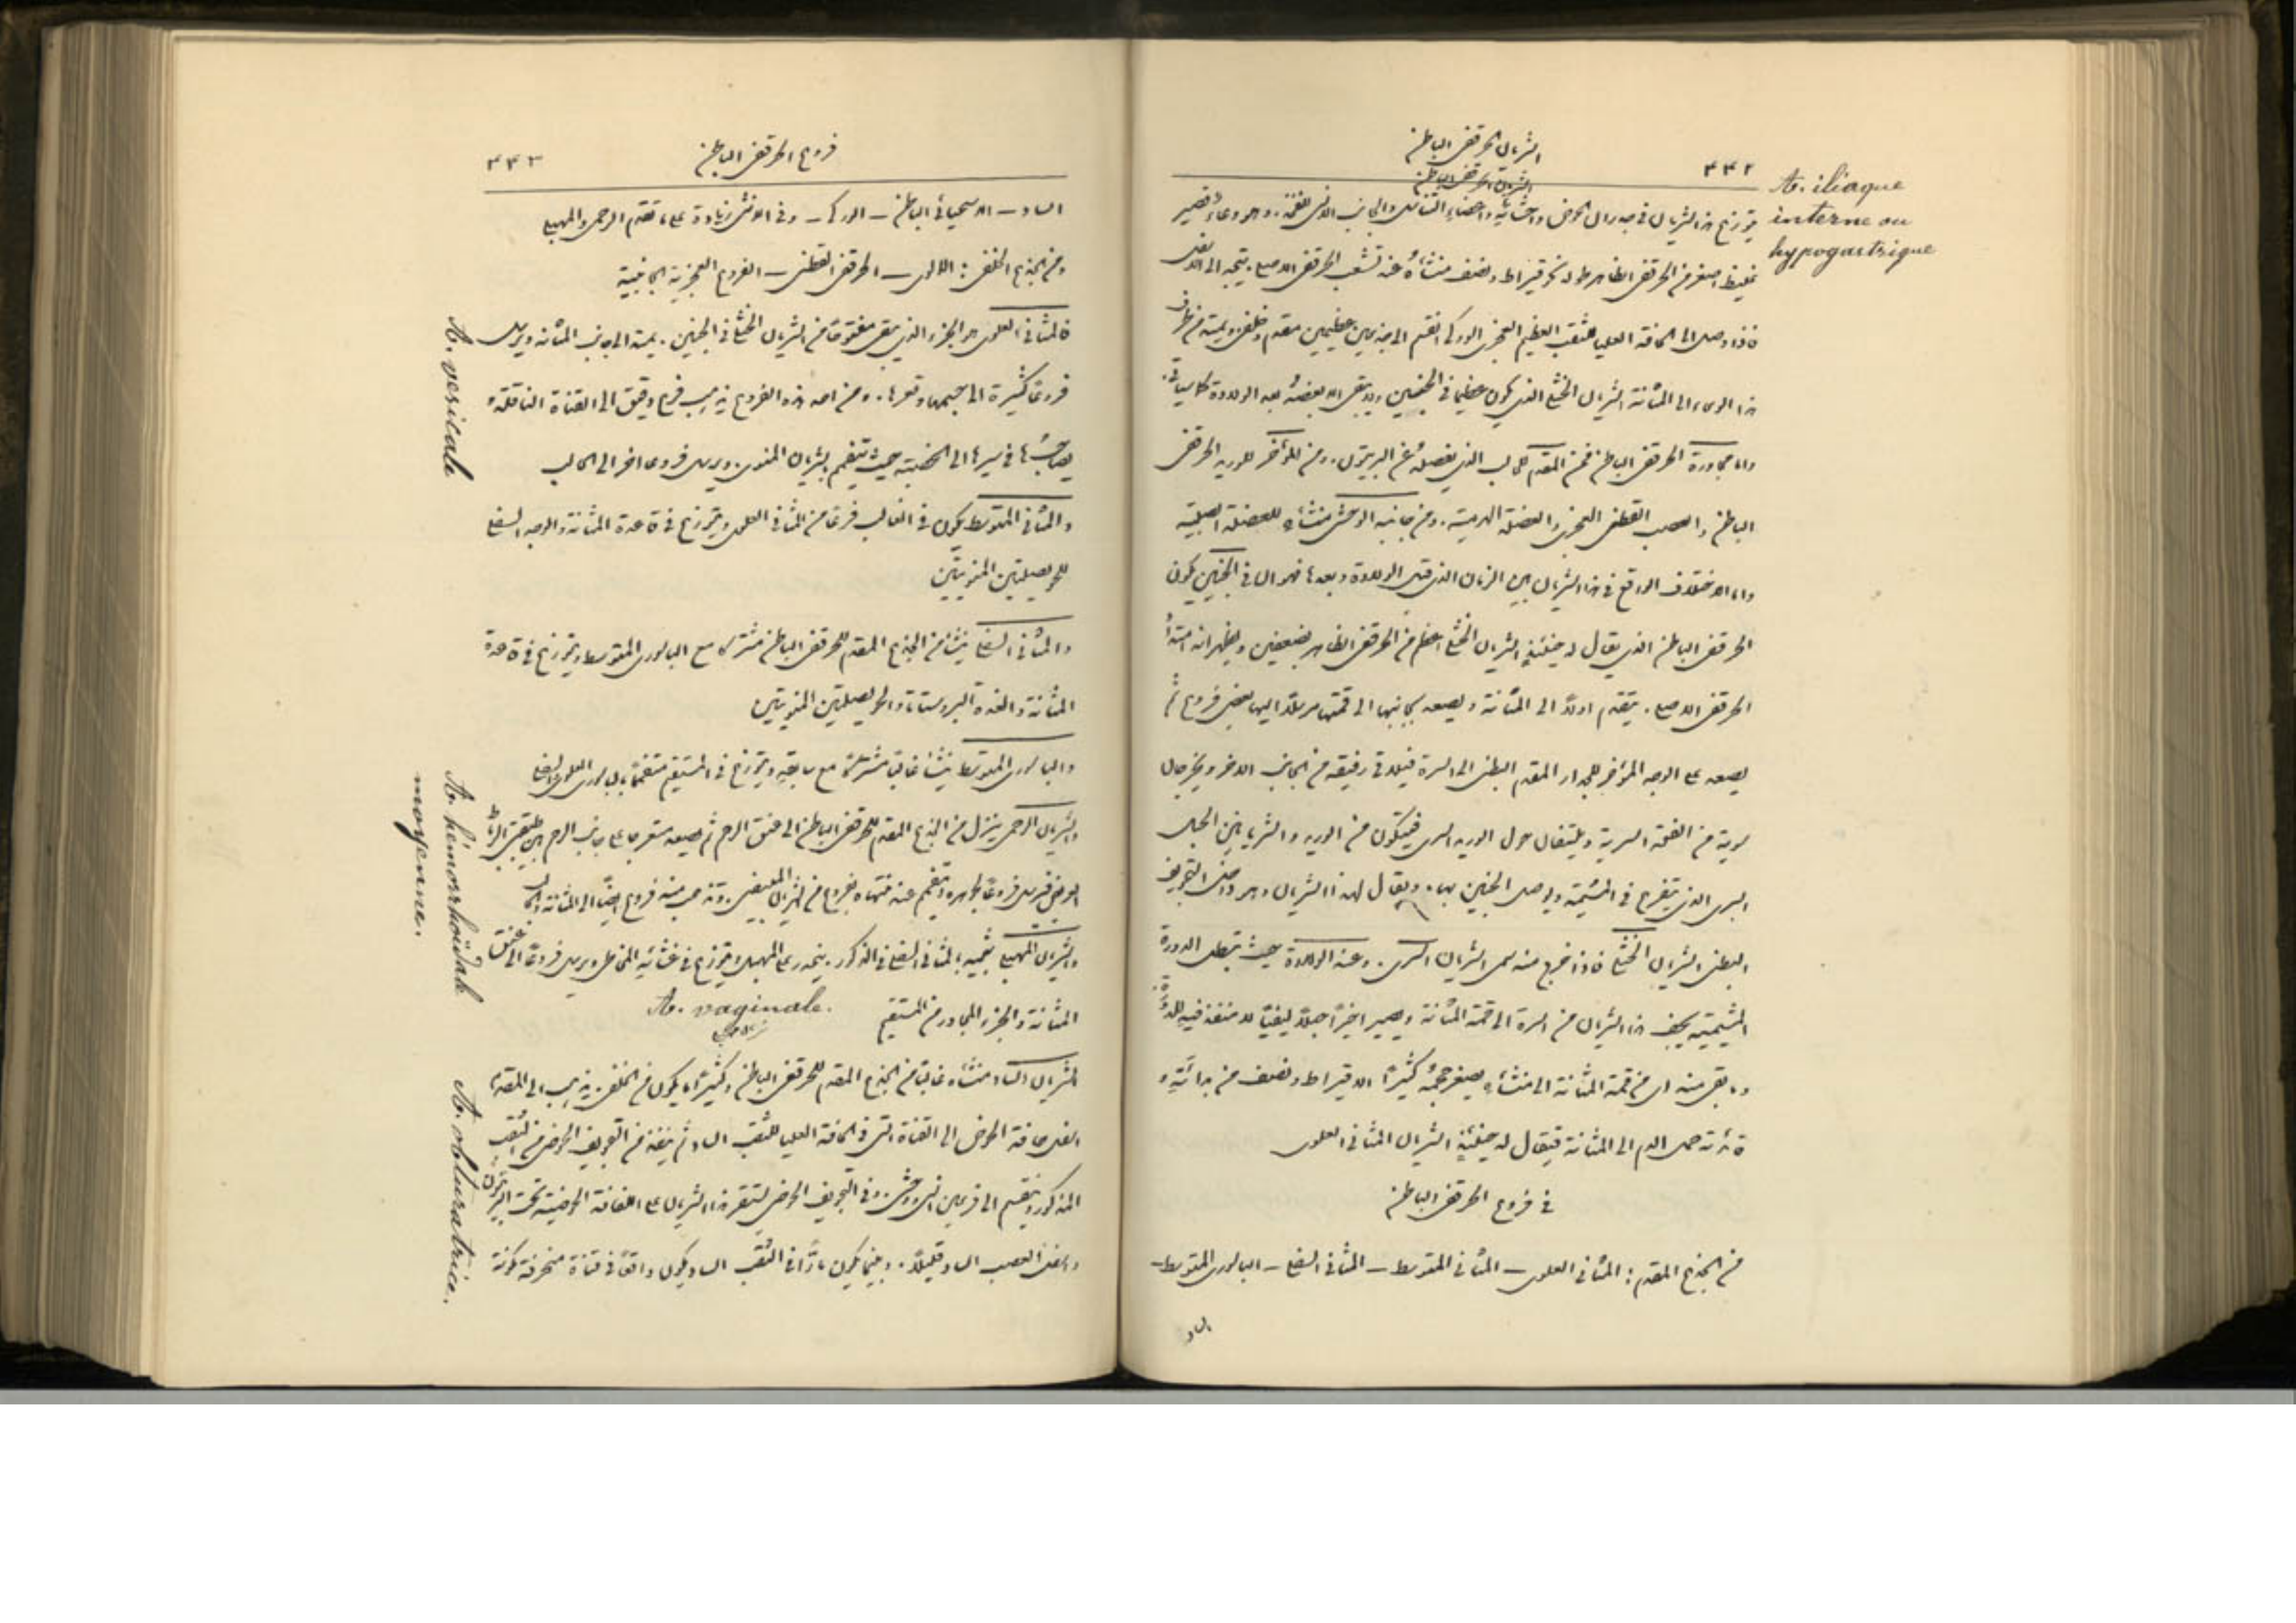 الشريان الحرقفي الباطن
٤٤٢
الشريان الحرقفي الباطن
A. iliaque
interne ou
hypogastrique
يتوزع هذا الشريان في جدران الحوض واحشائه واعضاء التناسل والجانب الانسي للفخذ. وهو وعاء قصير
غليظ اصغر من الحرقفي الظاهر طوله نحو قيراط ونصف منشأه عند تشعب الحرقفي الاصلي. يتجه الى الاسفل
فاذا وصل الى الحافة العليا للثقب العظيم العجزي الوركي انقسم الى جذعين عظيمين مقدم وخلفي ويمتد من طرف
هذا الوعاء الى المثانة الشريان الخثلي الذي يكون عظيما في الجنين ولا يبقى الا بعضه بعد الولادة كما سيأتي.
واما مجاورة الحرقفي الباطن فمن المقدم الحالب الذي يفصله عن البريتون. ومن المؤخر الوريد الحرقفي
الباطن والعصب القطني العجزي والعضلة الهرمية. ومن جانبه الوحشي منشائه العضلة
واما الاختلاف الواقع في هذا الشريان بين الزمان الذي قبل الولادة وبعدها فهو ان في الجنين يكون
الحرقفي الباطن الذي يقال له حينئذ الشريان الخثلي اعظم من الحرقفي الظاهر بضعفين ويظهر انه امتداد
الحرقفي الاصلي. يتقدم اولا الى المثانة ويصعد بجانبها الى قمتها مرسلا اليها بعض فروع ثم
يصعد على الوجه المؤخر للجدار المقدم البطني الى السرة فيلاقي رفيقه من الجانب الاخر ويخرجان
سوية من الفتحة السرية ويلتفان حول الوريد السري فيتكون من الوريد والشريانين الحبل
السري الذي يتفرع في المشيمة ويوصل الجنين بها. ويقال لهذا الشريان وهو داخل التجويف
البطني الشريان الخثلي فاذا خرج منه سمي الشريان السري. وعند الولادة حيث تبطل الدورة
المشيمية يجف هذا الشريان من السرة الى قمة المثانة ويصير اخيرا حبلا ليفيا لا منفذ فيه للدورة.
وما بقي منه اي من قمة المثانة الى منشائه يصغر حجمه كثيرا الا قيراط ونصف من بدائته و
فائدته حمل الدم الى المثانة فيقال له حينئذ الشريان المثاني العلوي
في فروع الحرقفي الباطن
من الجذع المقدم: المثاني العلوي – المثاني المتوسط – المثاني السفلي – الباسوري المتوسط –
الساد
فروع الحرقفي الباطن
٤٤٣
الساد – الاستحيائي الباطن – الوركي – وفي الانثى زيادة على ما تقدم الرحمي والمهبلي
ومن الجذع الخلفي: الالوي – الحرقفي القطني – الفروع العجزية الجانبية
فالمثاني العلوي هو الجزء الذي يبقى مفتوحا من الشريان الخثلي في الجنين. يمتد الى جانب المثانة ويرسل
A. vesicale
فروعا كثيرة الى جسمها وقعرها. ومن احد هذه الفروع يذهب فرع دقيق الى القناة الناقلة و
يصاحبها في سيرها الى الخصية حيث يتفمم بشريان المنوي. ويرسل فروعا اخر الى الحالب
والمثاني المتوسط يكون في الغالب فرعا من المثاني العلوي ويتوزع في قاعدة المثانة والوجه السفلي
للحويصلتين المنويتين
والمثاني السفلي ينشأ من الجذع المقدم للحرقفي الباطن مشتركا مع الباسوري المتوسط ويتوزع في قاعدة
المثانة والغدة البروستاتا والحويصلتين المنويتين
والباسوري المتوسط ينشأ غالبا مشتركا مع سابقه ويتوزع في المستقيم متفمما بالباسوري العلوي والسفلي
A. hémorrhoïdale
moyenne.
والشريان الرحمي ينزل من الجذع المقدم للحرقفي الباطن الى عنق الرحم ثم يصعد متعرجا على جانب الرحم بين طبقتي الرباط
العريض فيرسل فروعا لجوهره ويتفمم عند منتهاه بفروع من الشريان المبيضي. وتذهب منه فروع ايضا الى المثانة والحالب
والشريان المهبلي شبيه بالمثاني السفلي في الذكور. ينحدر على المهبل ويتوزع في غشائه المخاطي ويرسل فروعا الى عنق
المثانة والجزء المجاور من المستقيم
A. vaginale.
الشريان الساد منشأه غالبا من الجذع المقدم للحرقفي الباطن وكثيرا ما يكون من الخلفي. يذهب الى المقدم
A. obturatrice.
اسفل حافة الحوض الى القناة التي في الحافة العليا للثقب الساد ثم ينفذ من التجويف الحوضي من الثقب
المذكور وينقسم الى فرعين انسي ووحشي. وفي التجويف الحوضي يستقر هذا الشريان على اللفافة الحوضية تحت البريتون
واسفل العصب الساد قليلا. وبينما يكون مارا في الثقب الساد يكون واقعا في قناة منحرفة مكونة